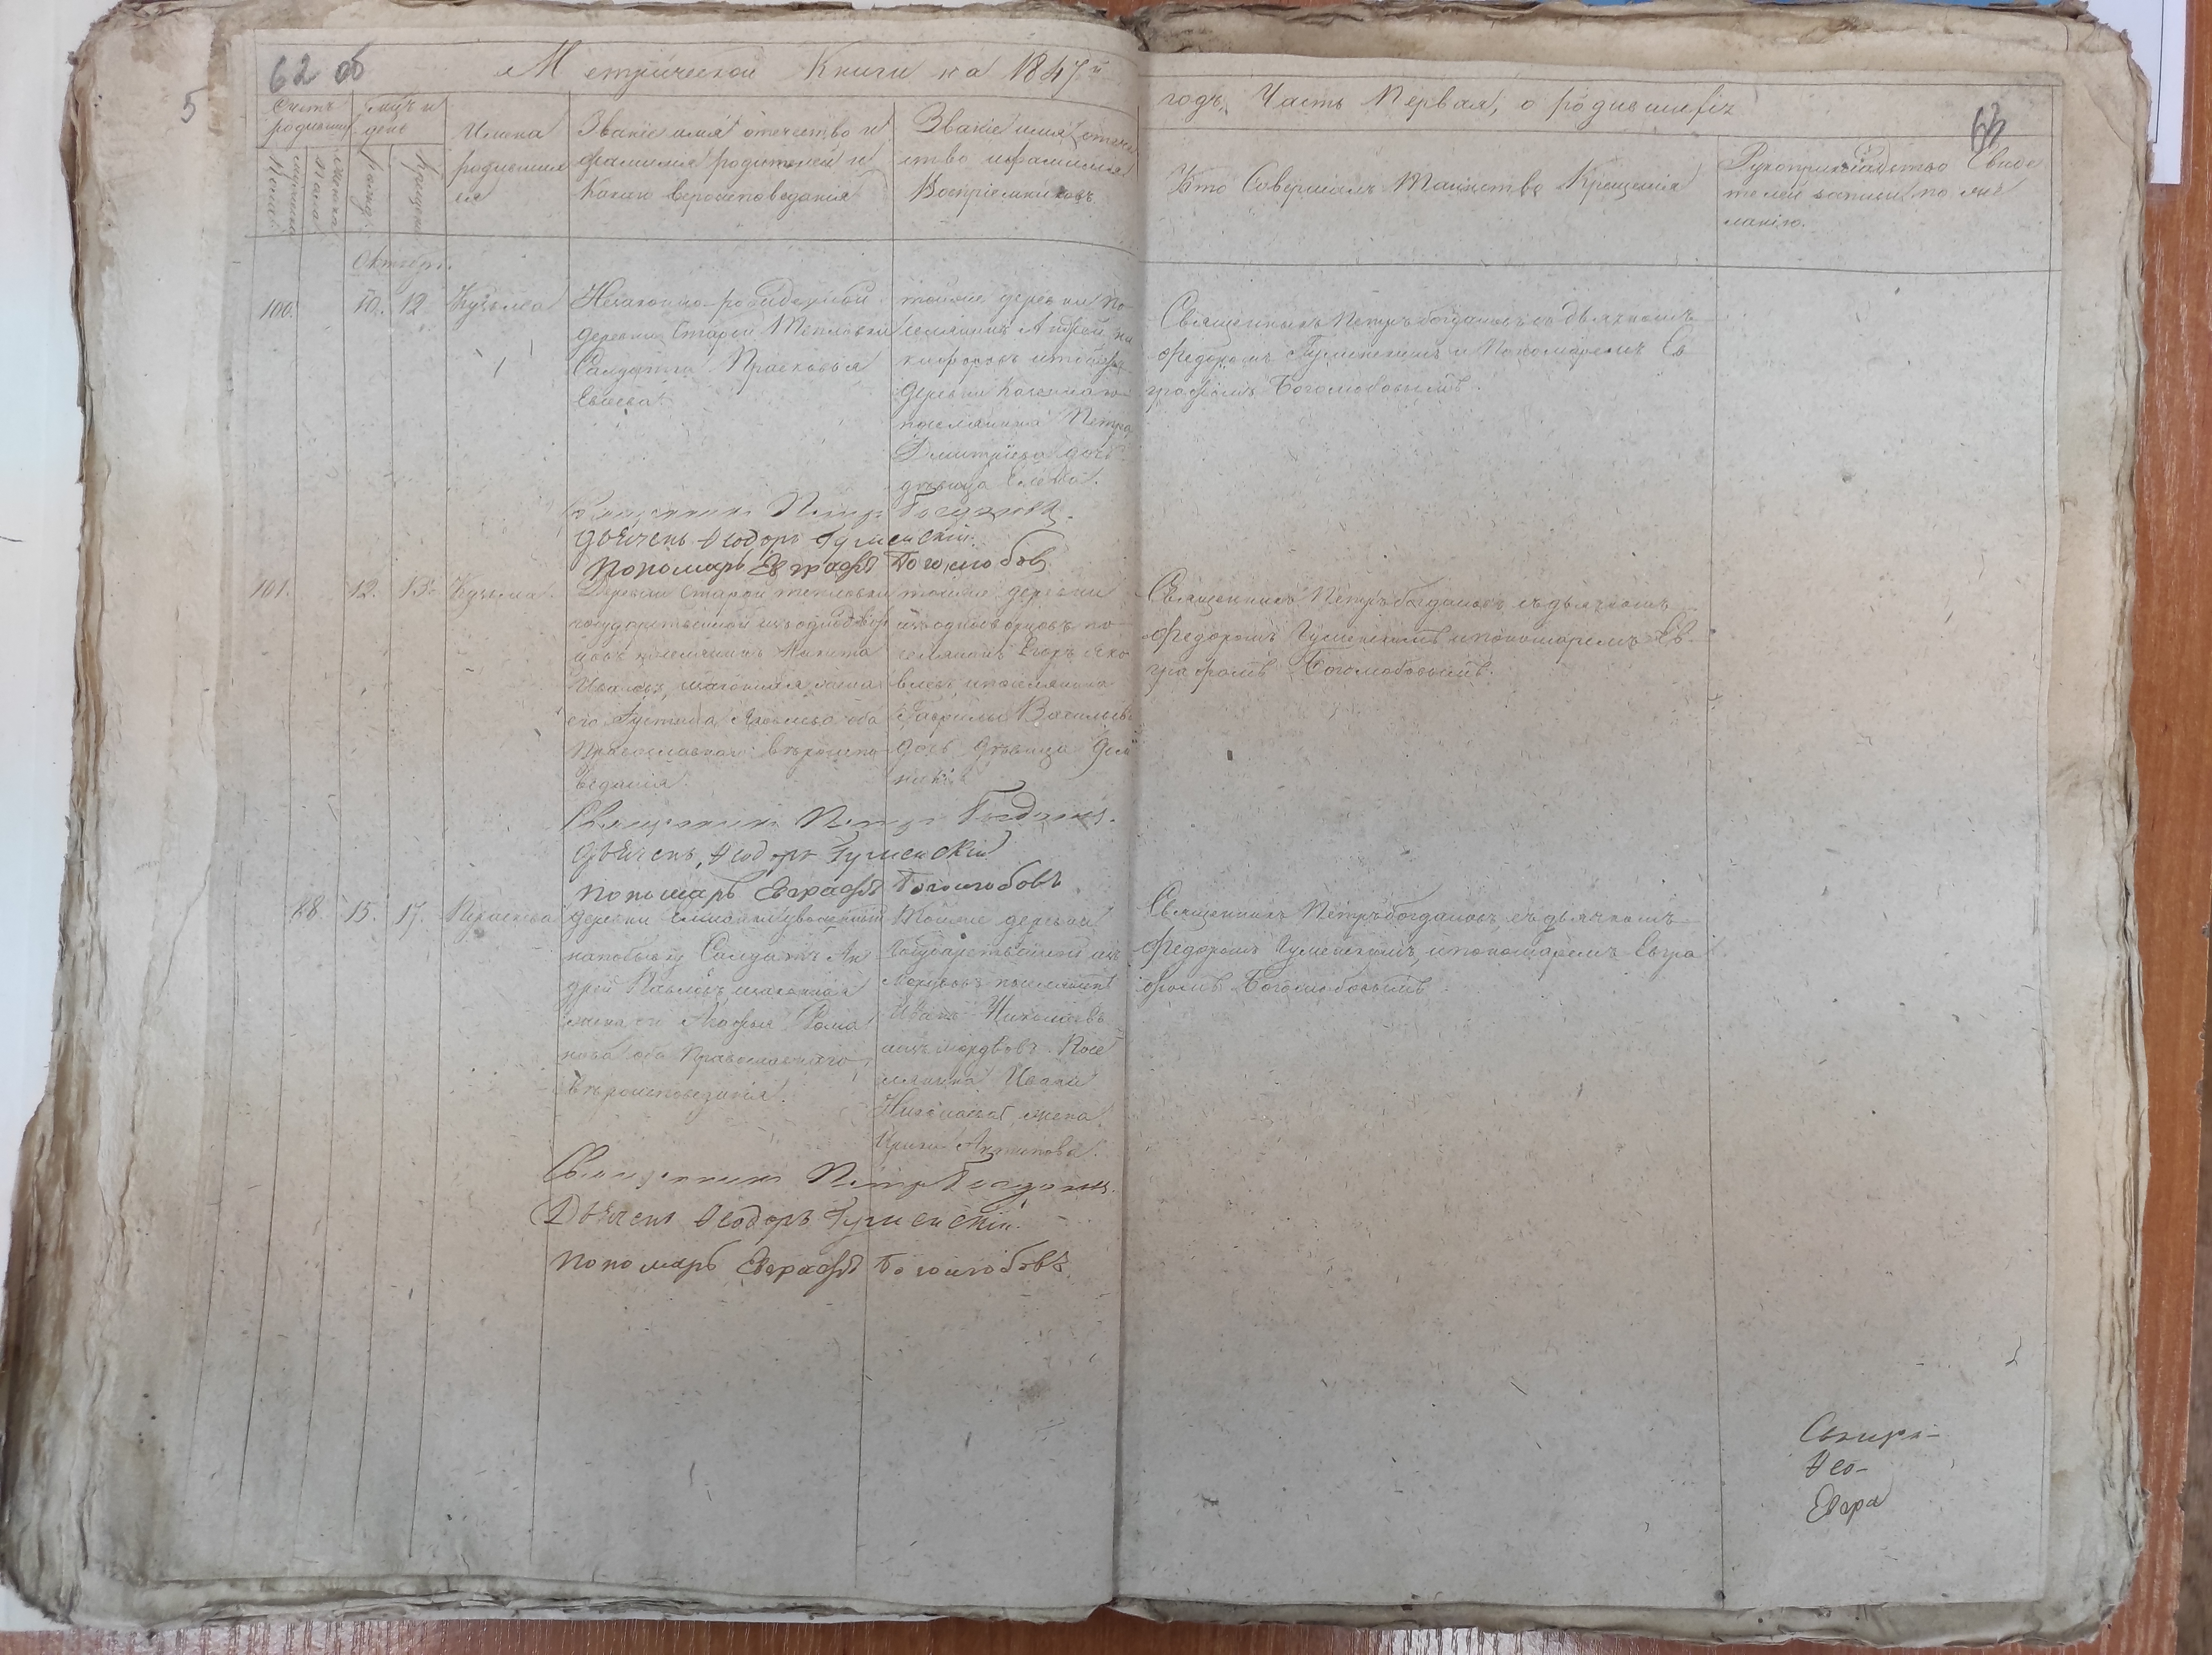 62 об
5
Метрической Книги на 1847й
годъ, Часть Первая, о родившихся
63
Счетъ родившихся
Мужеска Пола
Женска Пола
Мѣс. и день
Рожд.
Крещен.
Имена
родившихся
Званіе имя отечество и
фамилія родителей и
Какого вероисповеданія
Званіе имя отече
ство и фамилия
Воспріемниковъ
Кто Совершалъ Таинство Крещенія
Рукоприкладство Свиде
телей записи по же
ланію.
Октябрь.
100.
10. 12
Кузьма
Незаконно-рожденный
деревни Старой Тепловки
Салдатка Прасковья
тойже деревни по
селянинъ Андрей Ни
кифоровъ и тойже
деревни
поселянина Петра
Дмитріева дочь
девица Елена.
Священникъ Петръ Богдановъ съ дьячкомъ
Федоромъ Гуменскимъ и Пономаремъ Ев
графомъ Боголюбовымъ.
Священникъ Петръ Богдановъ.
Дьячекъ Ѳеодоръ Гуменскій.
Пономарь Евграфъ Боголюбовъ
101.
12. 13.
Кузьма.
Деревни Старой тепловки
государственной изъ однодвор
цовъ поселянинъ Никита
Ивановъ, законная жена
его Яковлева оба
Православнаго вероиспо
веданія.
тойже деревни
изъ однодворцовъ по
селянинъ Егоръ Яко
влевъ и поселянина
Гаврилы Васильева
дочь девица
Священникъ Петръ Богдановъ съ дьячкомъ
Федоромъ Гуменскимъ и пономаремъ Ев
графомъ Боголюбовымъ.
Священникъ Петръ Богдановъ.
Дьячекъ, Ѳеодоръ Гуменскій
Пономарь Евграфъ Боголюбовъ
88.
15. 17.
деревни уволенный
на побывку Салдатъ Ан
дрей Павловъ, законная
жена его Агафья Рома
нова оба Православнаго
вероисповеданія.
Тойже деревни
Государственной изъ
Мордвовъ поселянинъ
Иванъ Николаевъ
изъ мордвовъ Посе
лянина Ивана
Николаева жена
Ирина
Священникъ Петръ Богдановъ съ дьячкомъ
Федоромъ Гуменскимъ, и пономаремъ Евгра
фомъ Боголюбовымъ
Священникъ Петръ Богдановъ.
Дьячекъ Ѳеодоръ Гуменскій.
Пономарь Евграфъ Боголюбовъ.
Ѳео-
Евгра